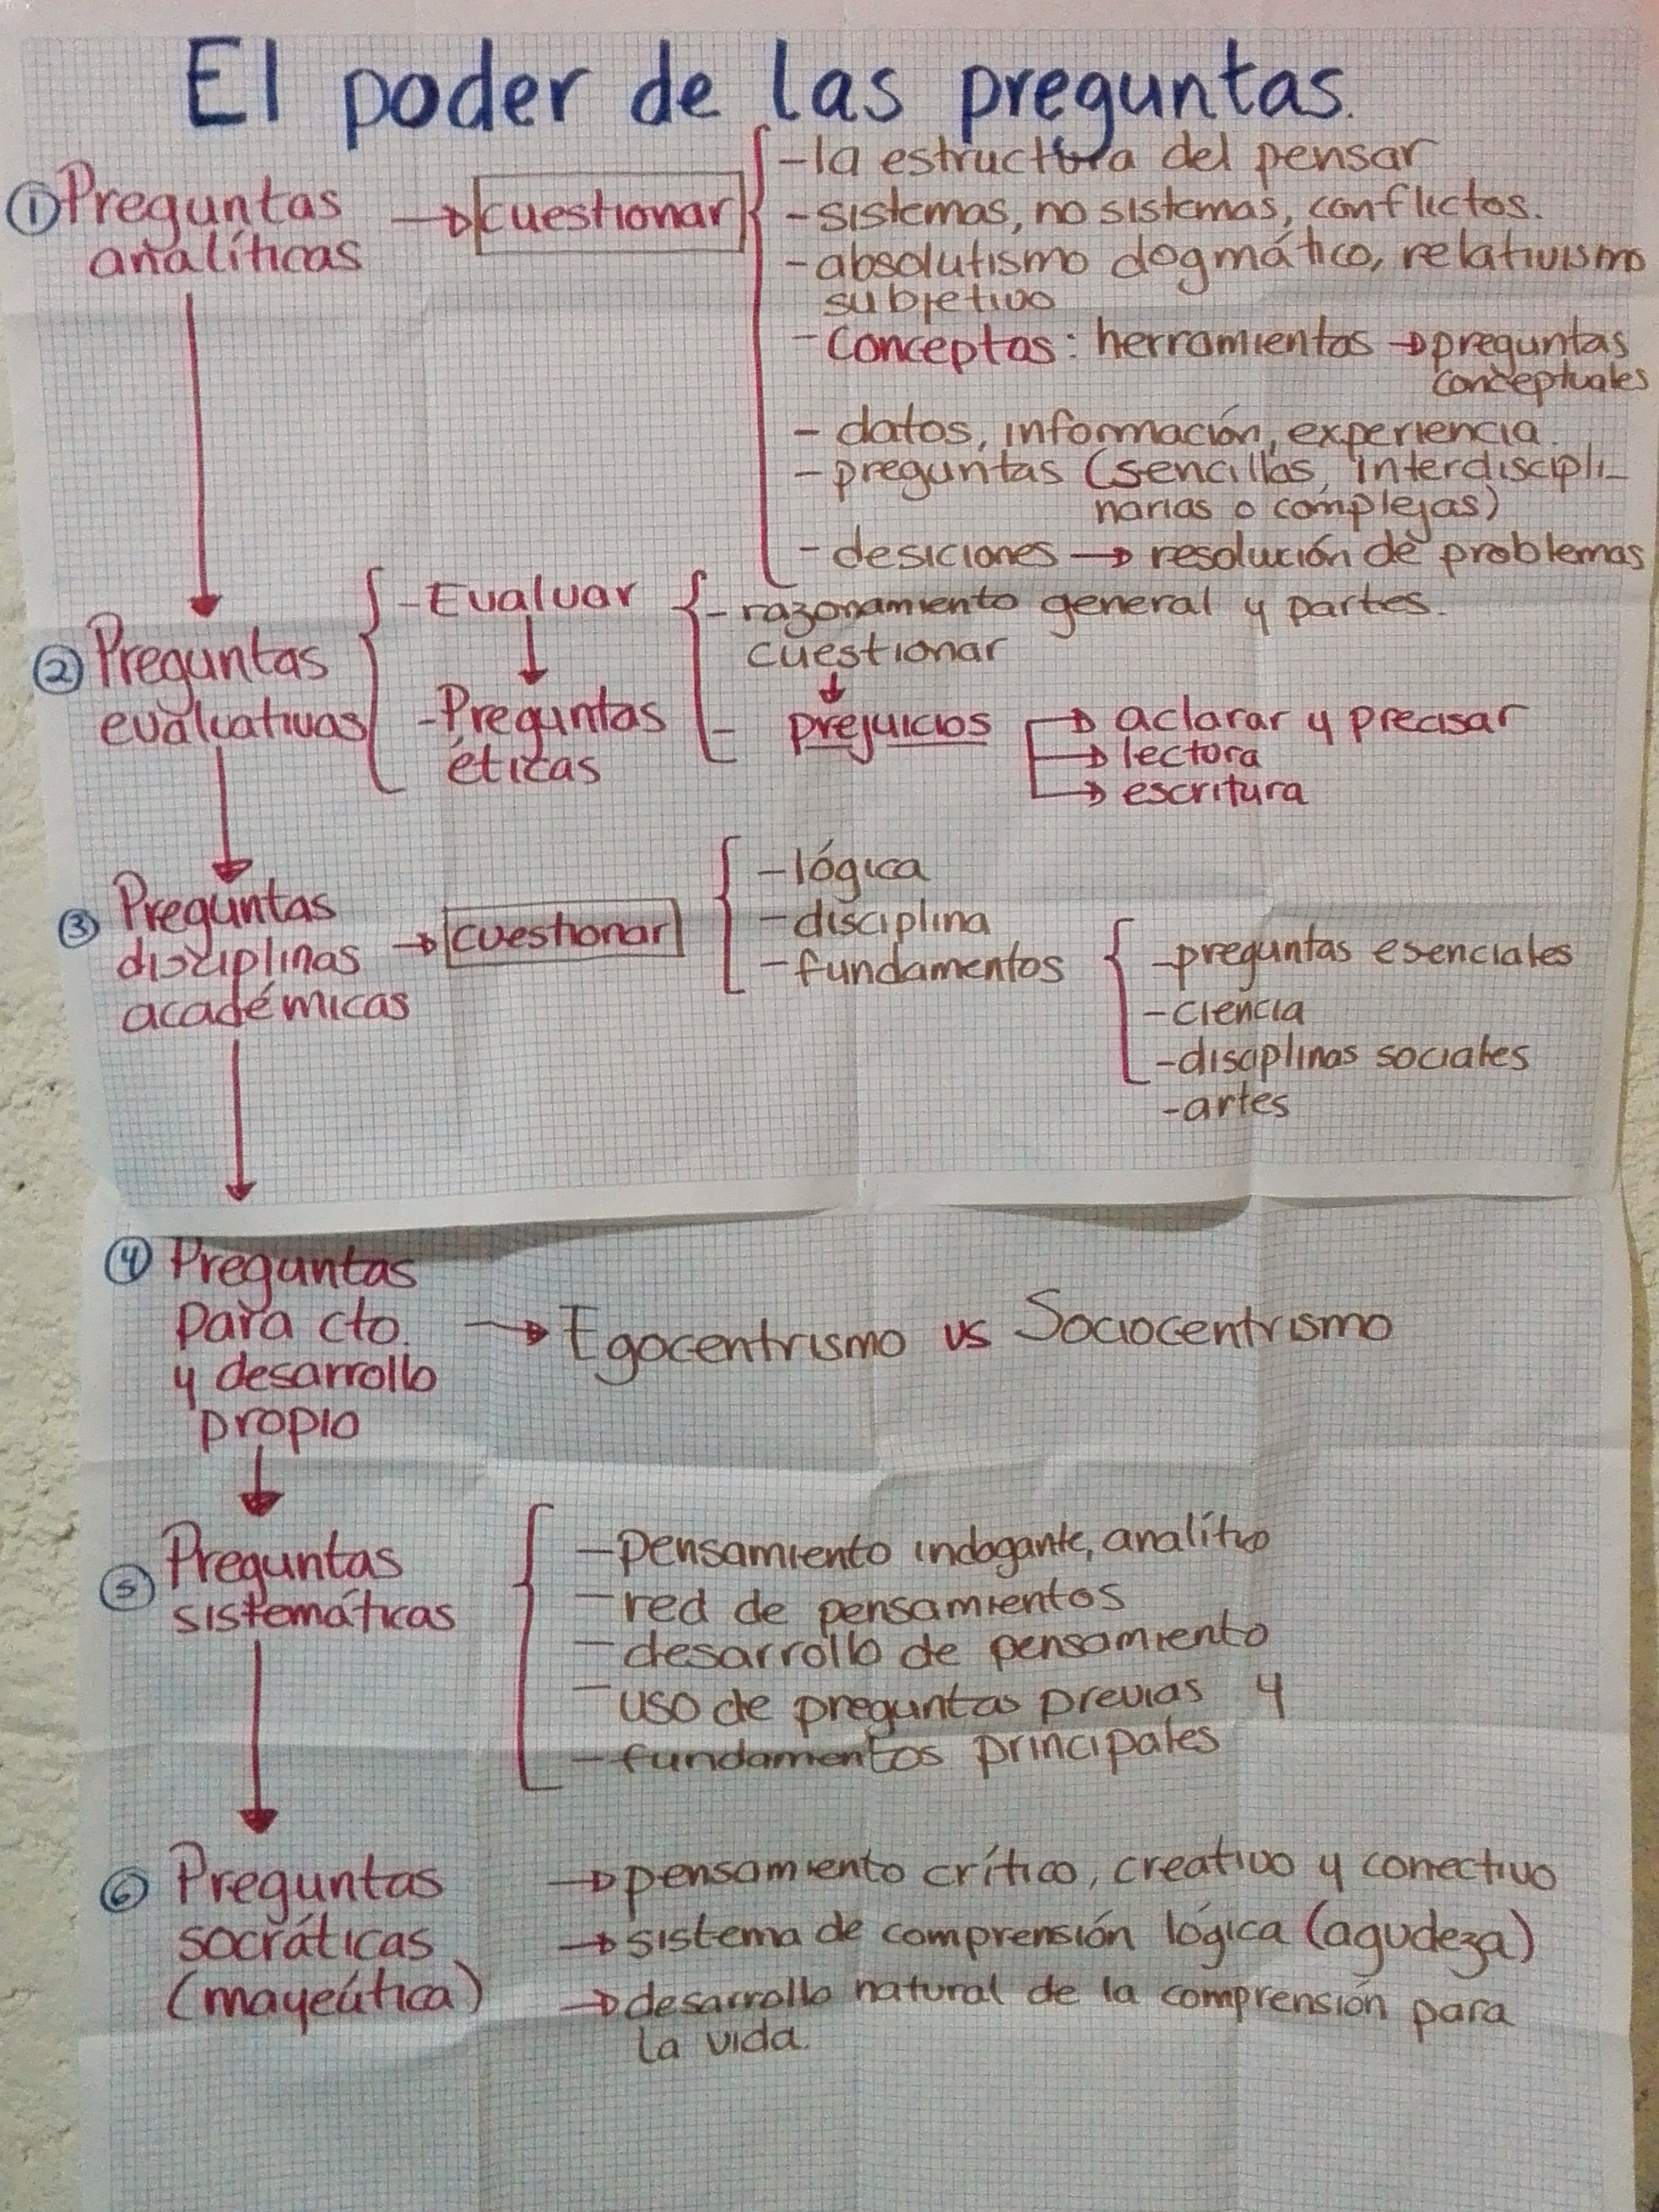 El poder de las preguntas.
① Preguntas
analíticas
→ cuestionar
- la estructura del pensar
- sistemas, no sistemas, conflictos.
- absolutismo dogmático, relativismo
subjetivo
- Conceptos: herramientas → preguntas
conceptuales
- datos, información, experiencia.
- preguntas (sencillas, interdiscipli-
narias o complejas)
- desiciones → resolución de problemas
② Preguntas
evaluativas
- Evaluar
↓
- Preguntas
éticas
- razonamiento general y partes.
cuestionar
↓
- prejuicios
→ aclarar y precisar
→ lectora
→ escritura
③ Preguntas
disciplinas
académicas
→ cuestionar
- lógica
- disciplina
- fundamentos
- preguntas esenciales
- ciencia
- disciplinas sociales
- artes
④ Preguntas
para cto.
y desarrollo
propio
→ Egocentrismo vs Sociocentrismo
⑤ Preguntas
sistemáticas
- pensamiento indagante, analítico
- red de pensamientos
- desarrollo de pensamiento
- uso de preguntas previas y
- fundamentos principales
⑥ Preguntas
socráticas
(mayeútica)
→ pensamiento crítico, creativo y conectivo
→ sistema de comprensión lógica (agudeza)
→ desarrollo natural de la comprensión para
la vida.